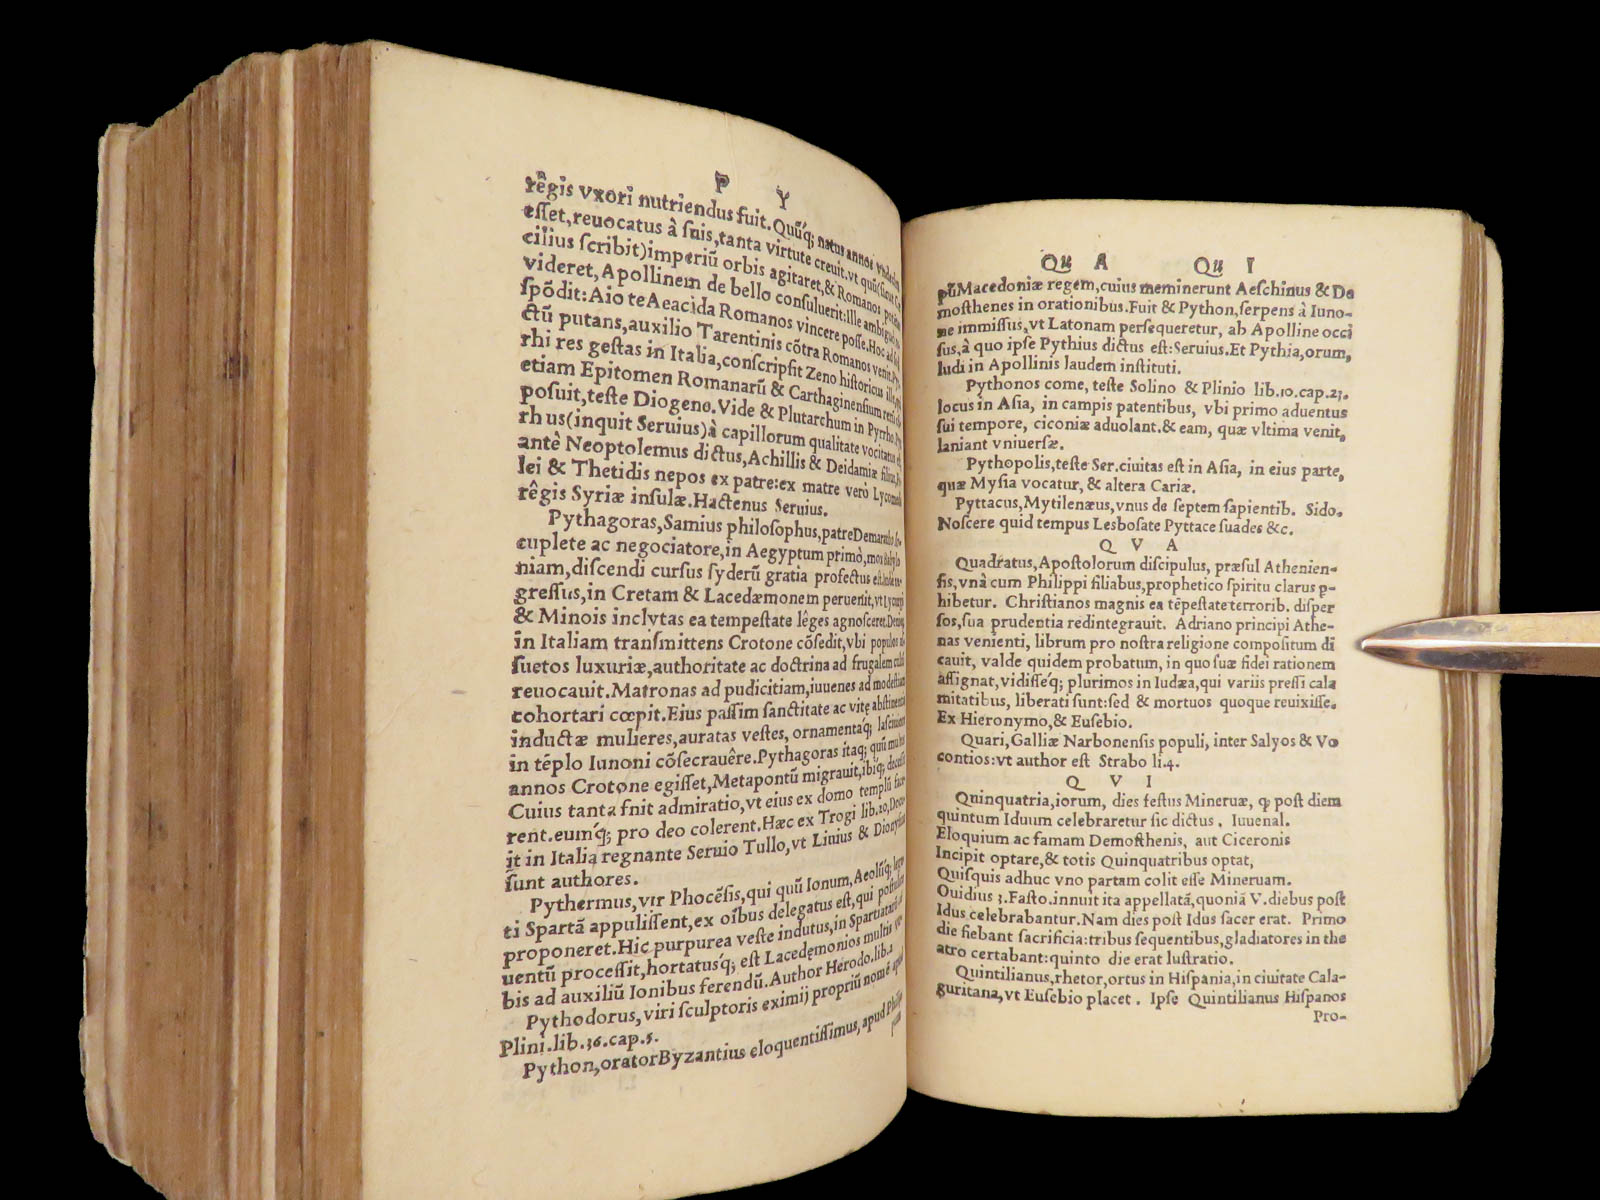 P Y
rêgis vxori nutriendus fuit. Quū́q; natus annos
eſſet, reuocatus à ſuis, tanta virtute creuit. vt quū (ſicut
cilius ſcribit) imperiū orbis agitaret, & Romanos
videret, Apollinem de bello conſuluerit: Ille
ſpōdit: Aio te Aeacida Romanos vincere poſſe. Hoc ad
ctū putans, auxilio Tarentinis cōtra Romanos venit.
rhi res geſtas in Italia, conſcripſit Zeno hiſtoricus
etiam Epitomen Romanarū & Carthaginenſium
poſuit, teſte Diogeno. Vide & Plutarchum in Pyrrho.
rhus (inquit Seruius) à capillorum qualitate vocitatus
antè Neoptolemus dictus, Achillis & Deidamiæ filius,
lei & Thetidis nepos ex patre: ex matre verò
rêgis Syriæ inſulæ. Hactenus Seruius.
Pythagoras, Samius philoſophus, patre Demaratho
cuplete ac negociatore, in Aegyptum primò, mox
niam, diſcendi curſus ſyderū gratia profectus eſt.
greſſus, in Cretam & Lacedæmonem peruenit, vt Lycurgi
& Minois inclytas ea tempeſtate lêges agnoſceret.
in Italiam tranſmittens Crotone cōſedit, vbi populos
ſuetos luxuriæ, authoritate ac doctrina ad frugalem
reuocauit. Matronas ad pudicitiam, iuuenes ad modeſtiam
cohortari cœpit. Eius paſſim ſanctitate ac vitę abſtinentia
inductæ mulieres, auratas veſtes, ornamentaq́;
in tēplo Iunoni cōſecrauêre. Pythagoras itaq; quū multos
annos Crotone egiſſet, Metapontū migrauit, ibiq́;
Cuius tanta fnit admiratio, vt eius ex domo templū
rent. eumq́; pro deo colerent. Hæc ex Trogi lib. 20.
it in Italia regnante Seruio Tullo, vt Liuius &
ſunt authores.
Pythermus, vir Phocēſis, qui quū Ionum, Aeolūq́;
ti Spartā appuliſſent, ex oībus delegatus eſt, qui
proponeret. Hic purpurea veſte indutus, in
uentū proceſſit, hortatusq́; eſt Lacedęmonios multis
bis ad auxiliū Ionibus ferendū. Author Herodo. lib. 2
Pythodorus, viri ſculptoris eximij propriū nomē apud
Plini. lib. 36. cap. 5.
Python, orator Byzantius eloquentiſſimus, apud
Qu A Qu I
pū Macedoniæ regem, cuius meminerunt Aeſchinus & De
moſthenes in orationibus. Fuit & Python, ſerpens à Iuno-
ne immiſſus, vt Latonam perſequeretur, ab Apolline occi
ſus, à quo ipſe Pythius dictus eſt: Seruius. Et Pythia, orum,
ludi in Apollinis laudem inſtituti.
Pythonos come, teſte Solino & Plinio lib. 10. cap. 23.
locus in Aſia, in campis patentibus, vbi primo aduentus
ſui tempore, ciconiæ aduolant. & eam, quæ vltima venit,
laniant vniuerſæ.
Pythopolis, teſte Ser. ciuitas eſt in Aſia, in eius parte,
quæ Myſia vocatur, & altera Cariæ.
Pyttacus, Mytilenæus, vnus de ſeptem ſapientib. Sido.
Noſcere quid tempus Lesboſate Pyttace ſuades &c.
Q V A
Quadratus, Apoſtolorum diſcipulus, præſul Athenien-
ſis, vnà cum Philippi filiabus, prophetico ſpiritu clarus p-
hibetur. Chriſtianos magnis ea tēpeſtate terrorib. diſper
ſos, ſua prudentia redintegrauit. Adriano principi Athe-
nas venienti, librum pro noſtra religione compoſitum di
cauit, valde quidem probatum, in quo ſuæ fidei rationem
aſſignat, vidiſſeq́; plurimos in Iudæa, qui variis preſſi cala
mitatibus, liberati ſunt: ſed & mortuos quoque reuixiſſe.
Ex Hieronymo, & Euſebio.
Quari, Galliæ Narbonenſis populi, inter Salyos & Vo
contios: vt author eſt Strabo li. 4.
Q V I
Quinquatria, iorum, dies feſtus Mineruæ, ꝙ poſt diem
quintum Iduum celebraretur ſic dictus. Iuuenal.
Eloquium ac famam Demoſthenis, aut Ciceronis
Incipit optare, & totis Quinquatribus optat,
Quiſquis adhuc vno partam colit eſſe Mineruam.
Ouidius 3. Faſto. innuit ita appellatā, quoniā V. diebus poſt
Idus celebrabantur. Nam dies poſt Idus ſacer erat. Primo
die fiebant ſacrificia: tribus ſequentibus, gladiatores in the
atro certabant: quinto die erat luſtratio.
Quintilianus, rhetor, ortus in Hiſpania, in ciuitate Cala-
guritana, vt Euſebio placet. Ipſe Quintilianus Hiſpanos
Pro-